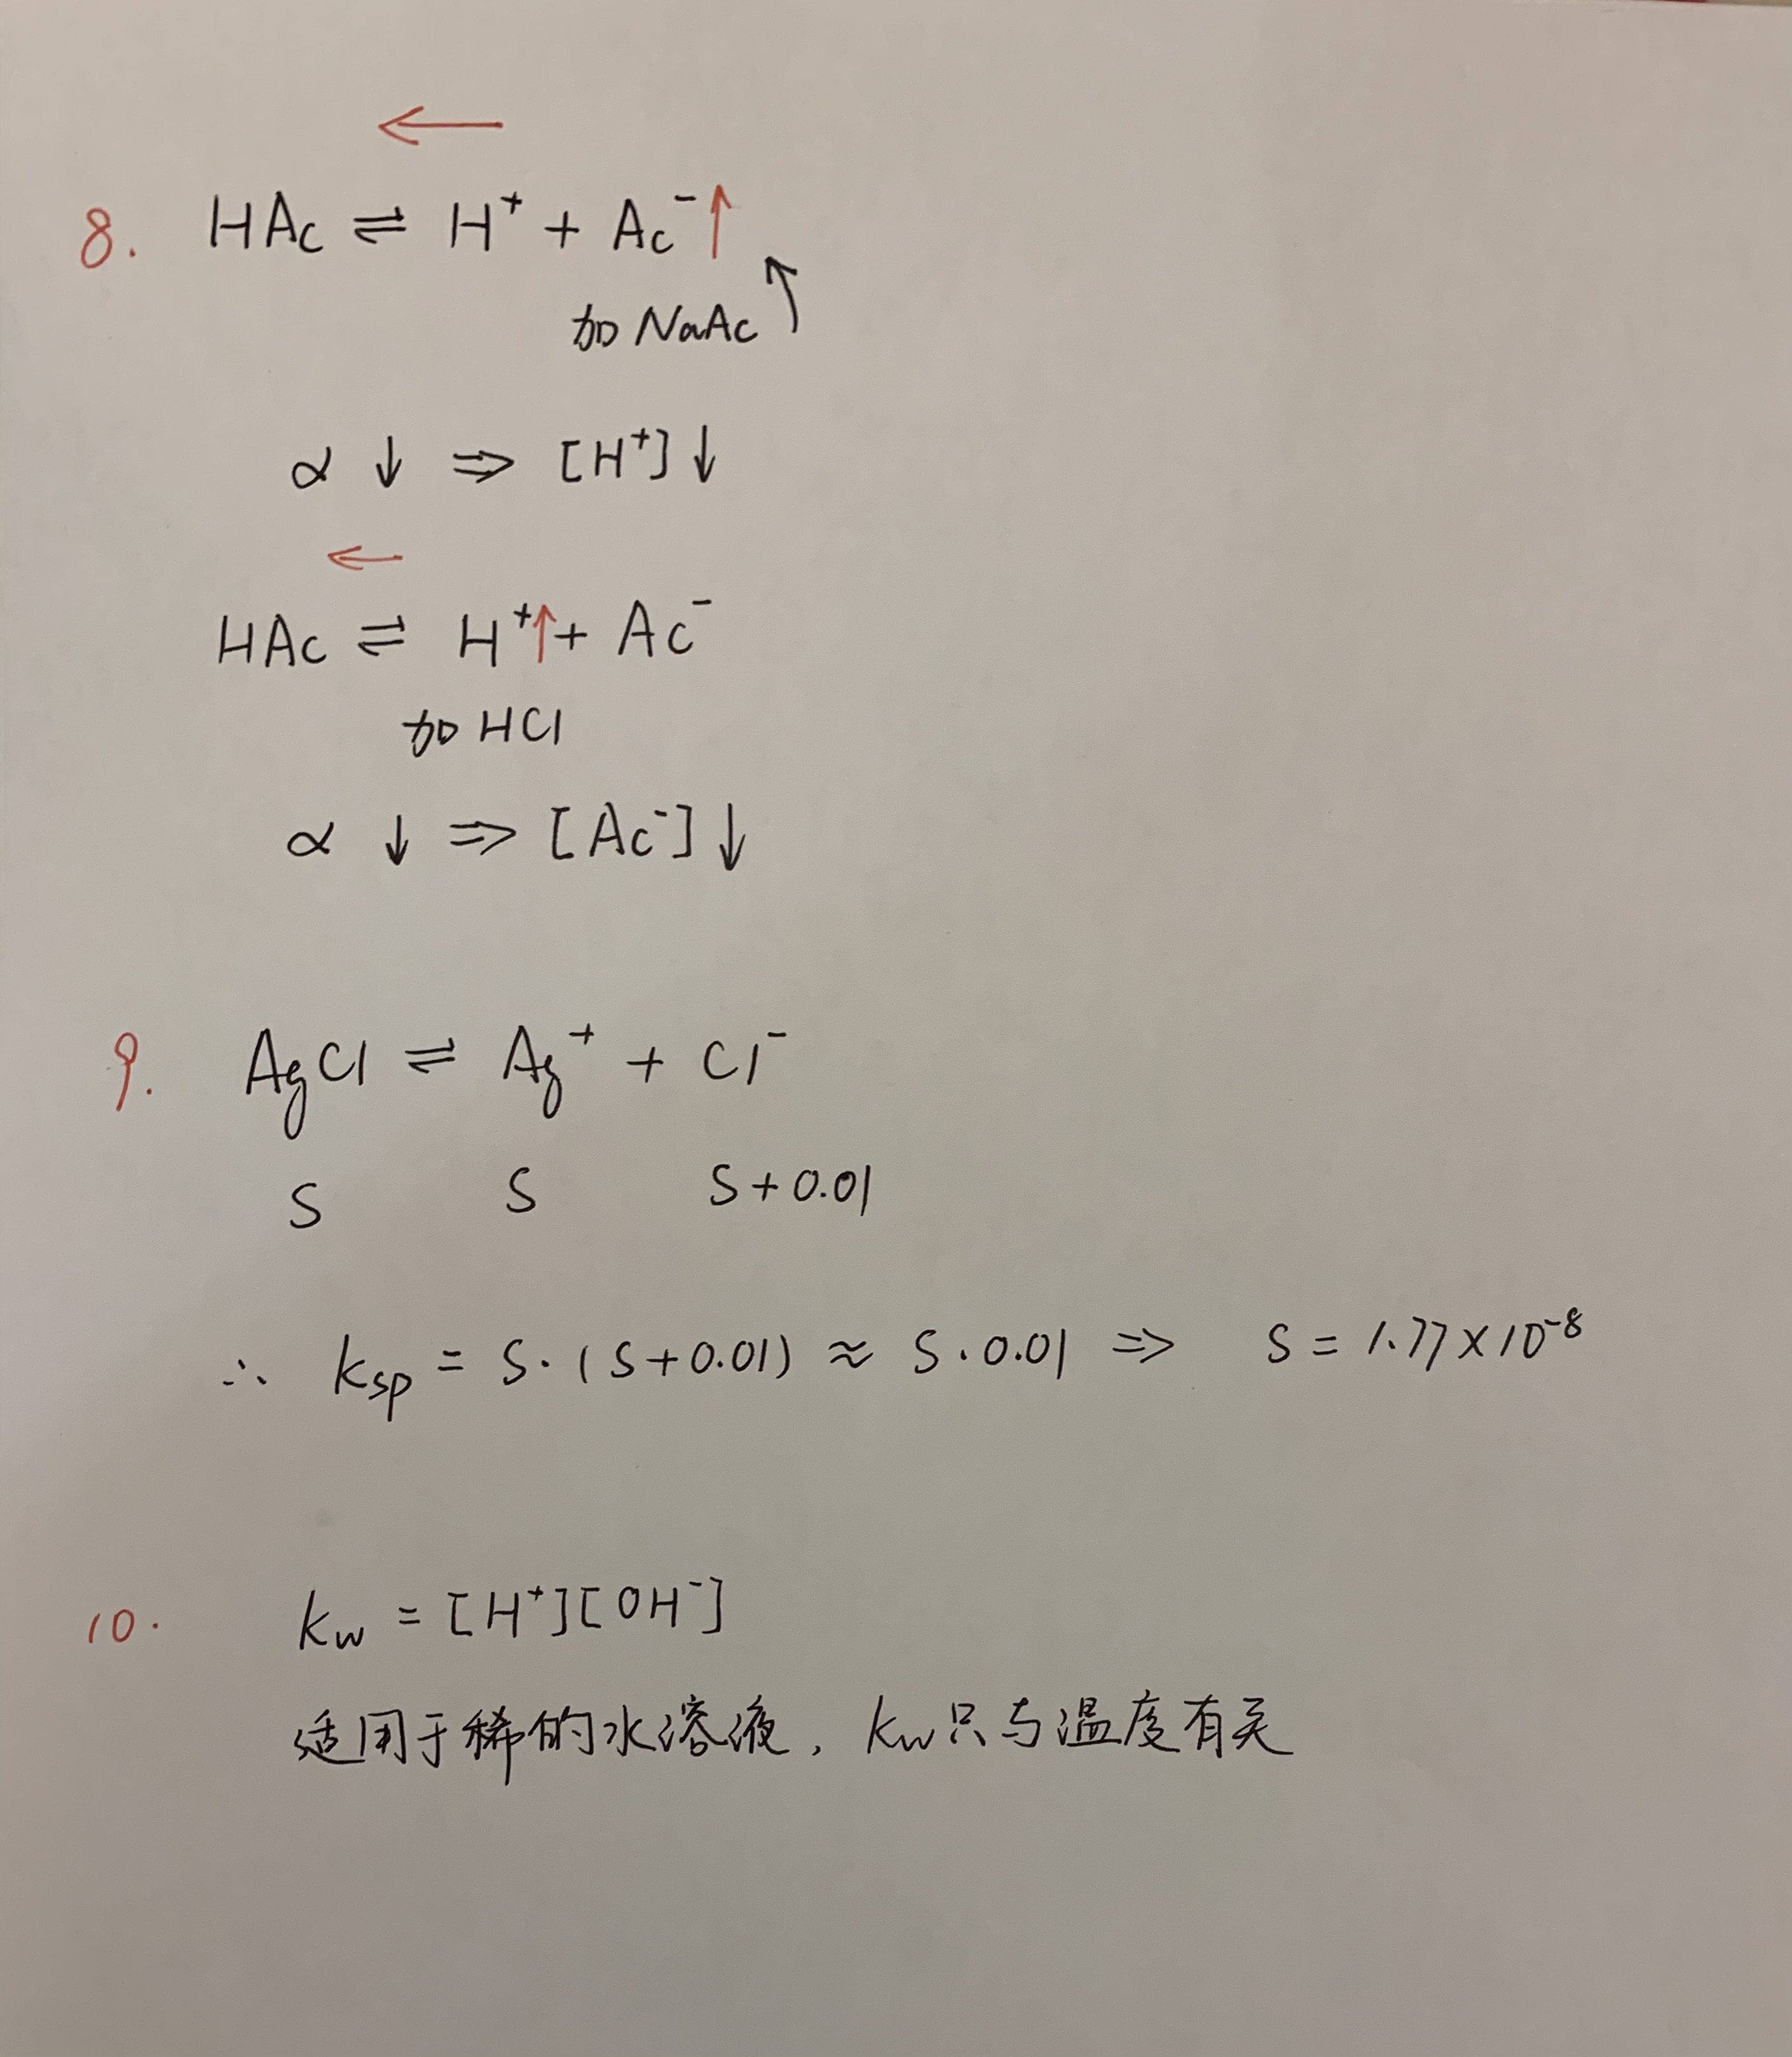 ←
8. HAc ⇌ H⁺ + Ac⁻↑
加 NaAc ↑
α ↓ ⇒ [H⁺]↓
←
HAc ⇌ H⁺↑ + Ac⁻
加 HCl
α ↓ ⇒ [Ac⁻]↓
9. AgCl ⇌ Ag⁺ + Cl⁻
S S S+0.01
∴ ksp = S·(S+0.01) ≈ S·0.01 ⇒ S = 1.77×10⁻⁸
10. kw = [H⁺][OH⁻]
适用于稀的水溶液, kw只与温度有关